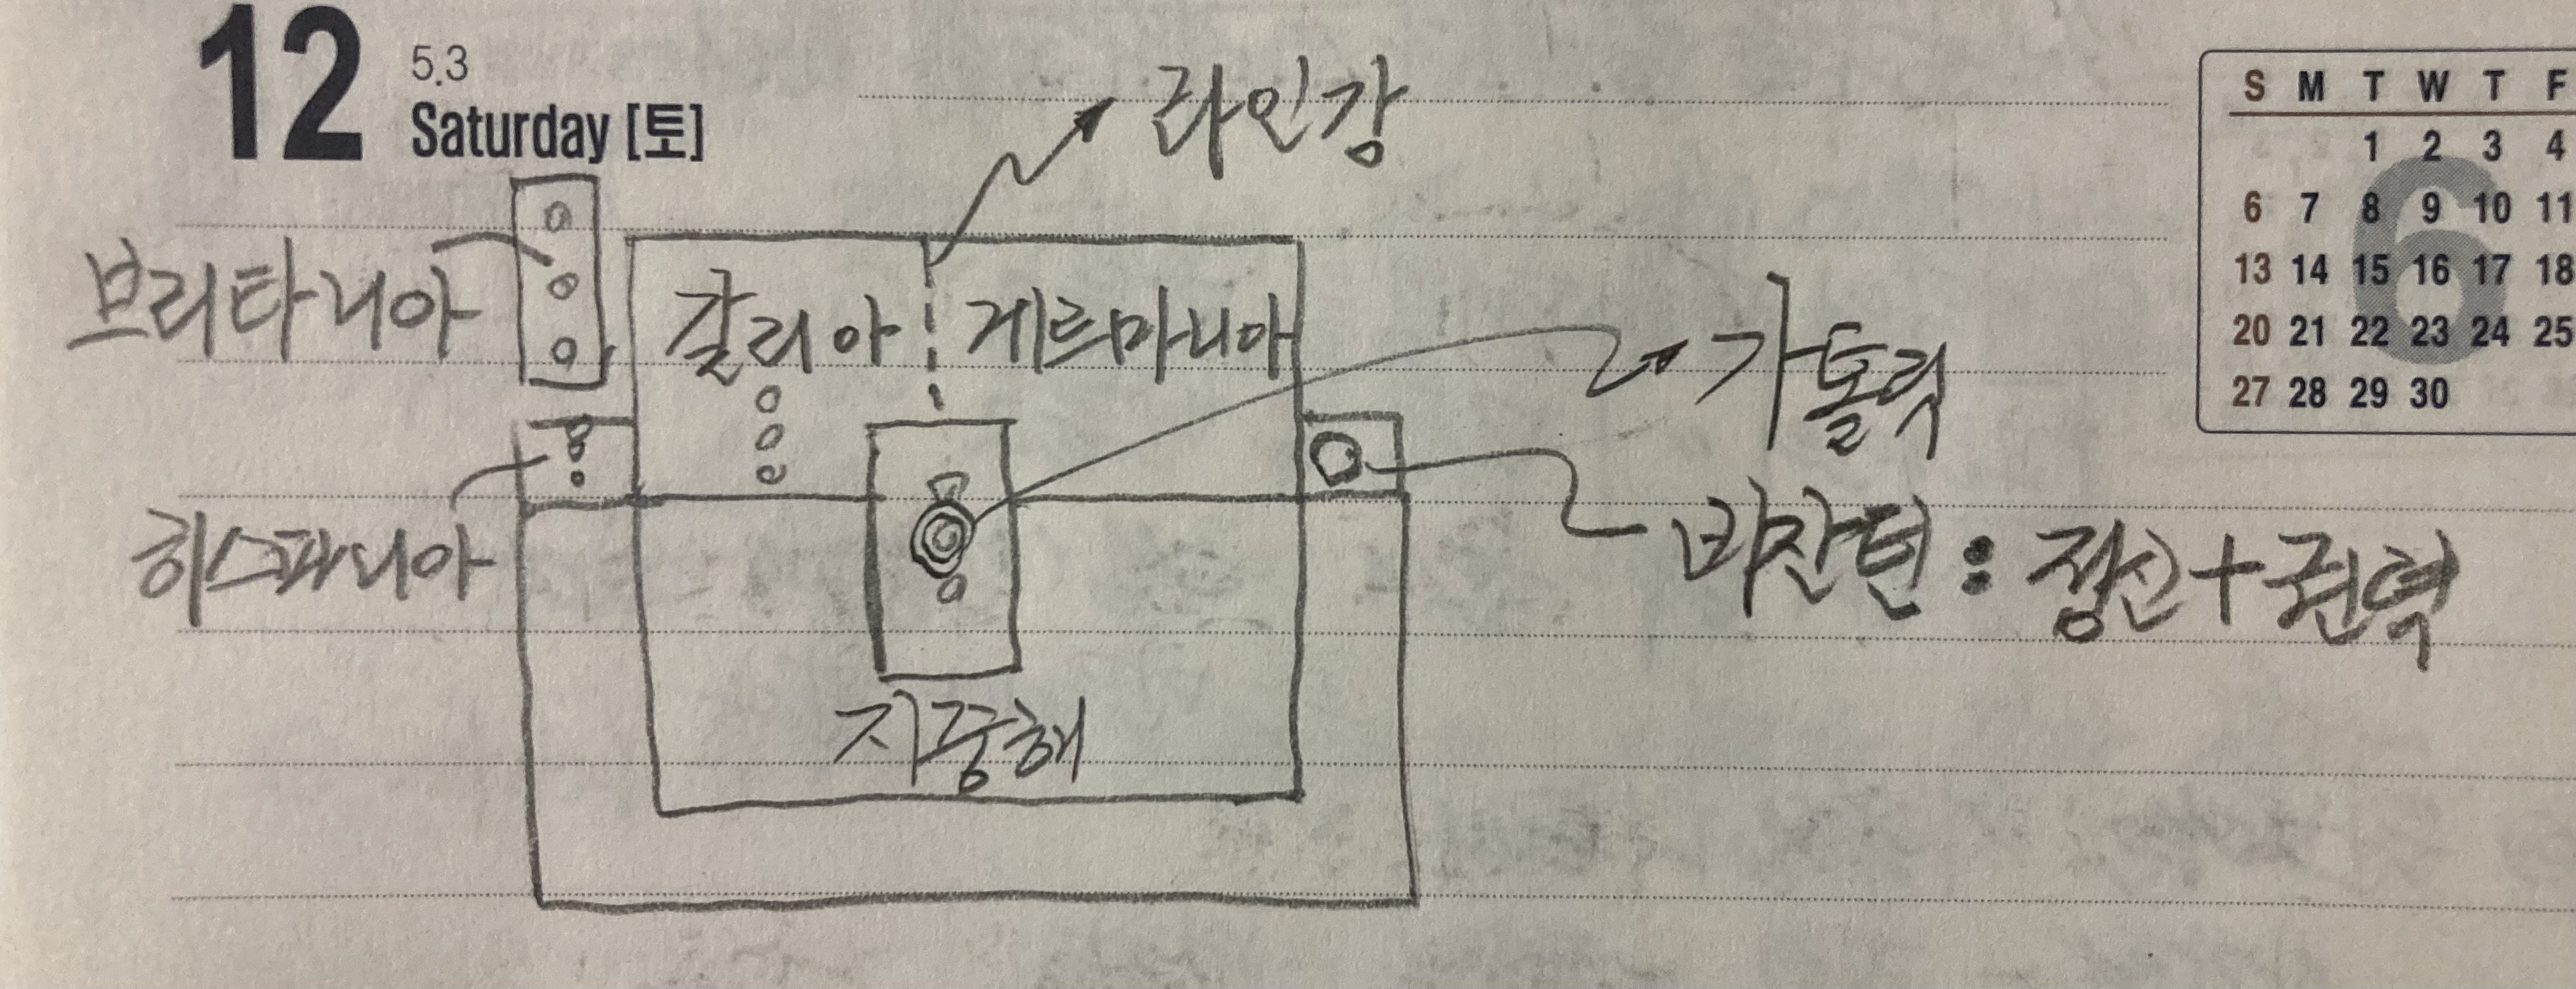 12
5.3
Saturday [토]
라인강
브리타니아
갈리아
게르마니아
가톨릭
히스파니아
비잔틴 : 정신 + 권력
지중해
S M T W T F
1 2 3 4
6 7 8 9 10 11
13 14 15 16 17 18
20 21 22 23 24 25
27 28 29 30
6